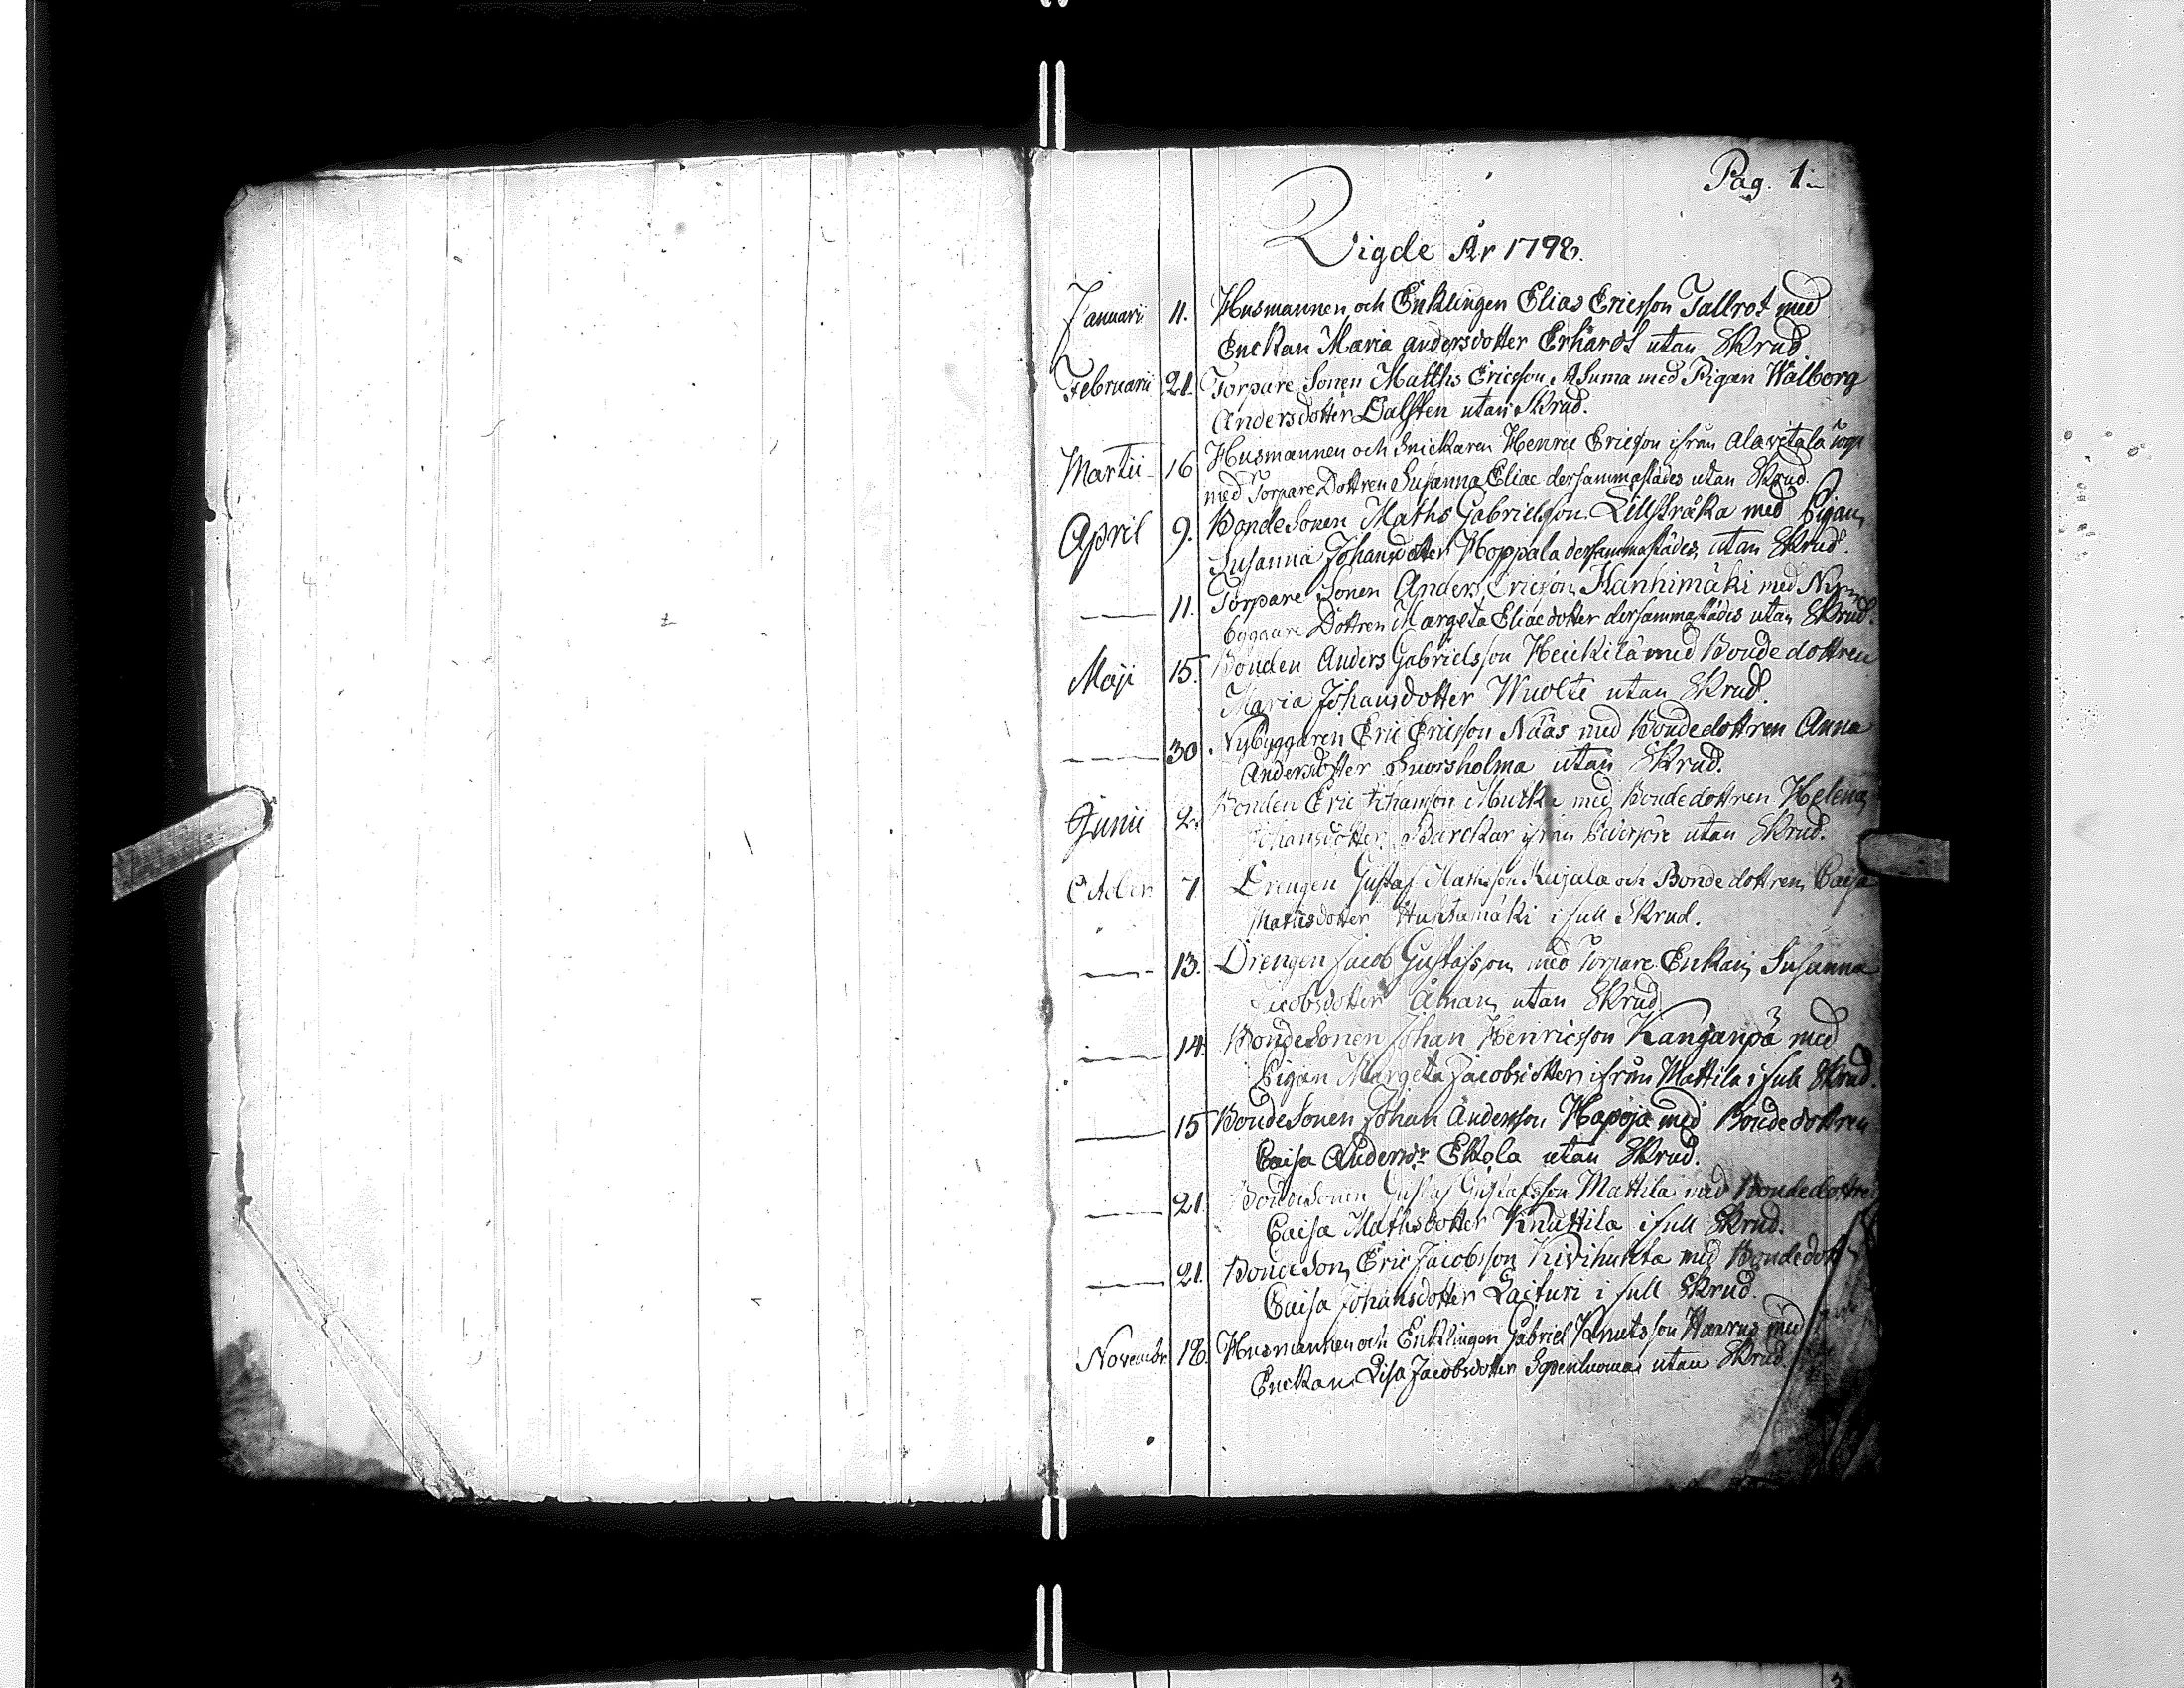 Pag. 1:
Vigde År 1798.
Januari 11. Husmannen och Enklingen Elias Ericsson Tallrot med
Enckan Maria andersdotter Erhardt utan Skrud
Februarii 21. Torpare Sonen Matths Ericsson Asuma med Pigan Walborg
Andersdotter Dalsten utan Skrud.
Martii 16 Husmannen och Snickaren Henric Ericsson ifrån alavetala
med Torpare Dottren Susanna Eliae dersammastädes utan Skrud.
April 9. Bondesonen Maths Gabrielsson Lillstråka med Pigan
Susanna Johansdotter Hoppala dersammastädes utan Skrud.
11. Torpare Sonen Anders Ericsson Hanhimäki med Ny
byggare Dottren Margeta Eliaedotter dersammastädes utan Skrud.
Maji 15. Bonden Anders Gabrielsson Heickilä med Bondedottren
Maria Johansdotter Wuolte utan Skrud.
30 Nybyggaren Eric Ericsson Näås med Bondedottren Anna
Andersdotter Svorsholma utan Skrud.
Junii 2. Bonden Eric Johansson med Bondedottren Helena
Johansdotter Barckar ifrån utan Skrud.
October 7 Drengen Gustaf Mathsson Kujala och Bondedottren Caisa
Mathsdotter Huhtamäki i full Skrud.
13. Drengen Jacob Gustafsson med Torpare Enkan Susanna
Jacobsdotter Åman utan Skrud
14. Bondesonen Johan Henricsson Kanganpä med
Pigan Margeta Jacobsdotter ifrån Mattila i full Skrud.
15 Bondesonen Johan Andersson Hapoja med Bondedottren
Caisa Andersdr Ekola utan Skrud.
21. Bondesonen Gustaf Gustafsson Mattila med Bondedottren
Caisa Mathsdotter Knuttila i full Skrud.
21. Bondeson Eric Jacobsson Kivihuhta med Bondedott
Caisa Johansdotter Laituri i full Skrud.
Novembr 18. Husmannen och Enklingen Gabriel Knutsson Haarus med
Enckan Lisa Jacobsdotter utan Skrud